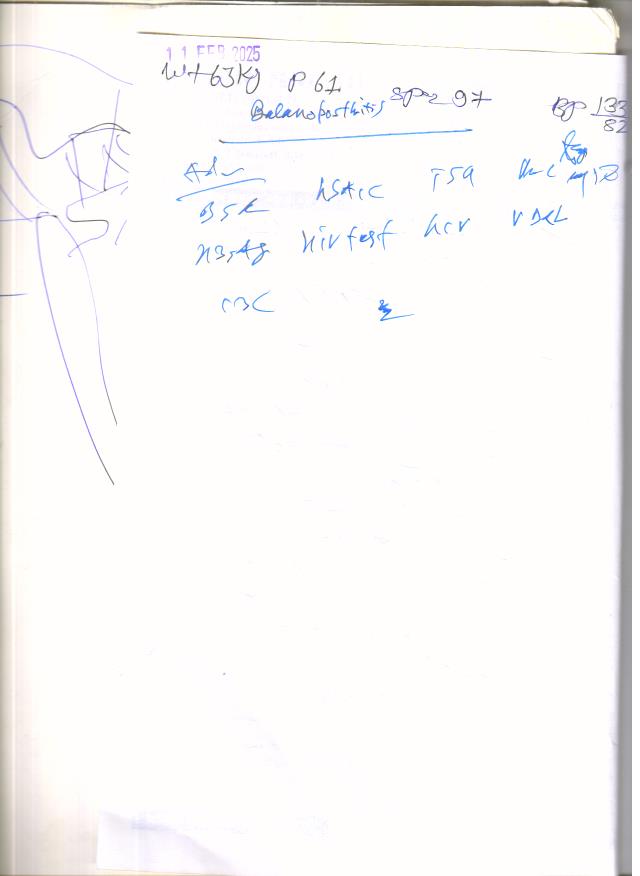 11 FEB 2025
Wt 63Kg P 61 SPO2 97 BP 133/82
Balanoposthitis
Adv
BSR HbA1C TSH
HBsAg HIV test HCV VDRL
CBC